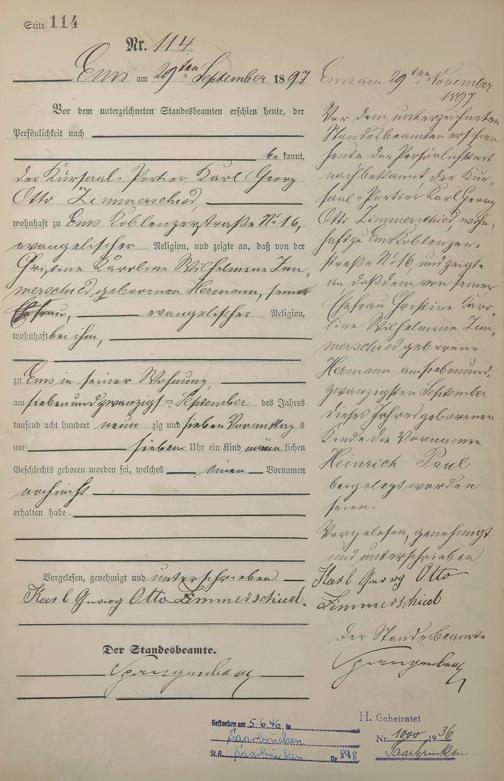 Seite 114
Nr. 114
Ems am 29ten September 1897
Vor dem unterzeichneten Standesbeamten erschien heute, der
Persönlichkeit nach
be kannt,
der Kursaal-Portier Karl Georg
Otto Zimmerschied,
wohnhaft zu Ems Koblenzerstraße No 16,
evangelischer Religion, und zeigte an, daß von der
Christine Karoline Wilhelmine Zim-
merschied geborenen Hermann, seiner
Ehefrau, evangelischer Religion,
wohnhaft bei ihm,
zu Ems in seiner Wohnung,
am siebenundzwanzigsten September des Jahres
tausend acht hundert neun zig und sieben Vormittags
um sieben Uhr ein Kind männlichen
Geschlechts geboren worden sei, welches einen Vornamen
noch nicht
erhalten habe.
Vorgelesen, genehmigt und unterschrieben
Karl Georg Otto Zimmerschied.
Der Standesbeamte.
Spangenberg
Ems am 29ten November
1897
Vor dem unterzeichneten
Standesbeamten erschien
heute der Persönlichkeit
nach bekannt, der Kur-
saal-Portier Karl Georg
Otto Zimmerschied wohn-
haft zu Ems Koblenzer-
straße No 16, und zeigte
an, daß dem von seiner
Ehefrau Christine Karo-
line Wilhelmine Zim-
merschied geborene
Hermann am siebenund-
zwanzigsten September
dieses Jahres geborenen
Kinde die Vornamen
Heinrich Paul
beigelegt worden
seien.
Vorgelesen, genehmigt
und unterschrieben
Karl Georg Otto
Zimmerschied
Der Standesbeamte
Spangenberg
Gestorben am 5.6.46 in
Saarbrücken
St.A. Saarbrücken Nr. 848
H. Geheiratet
Nr. 1000 1936
Saarbrücken